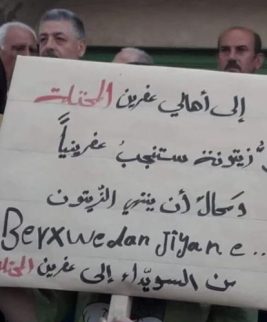 إلى أهالي عفرين المحتلة
زيتونة ستنجبُ عفرينياً
ومحال أن ينتهي الزيتون
Berxwedan Jiyane..
من السويداء إلى عفرين